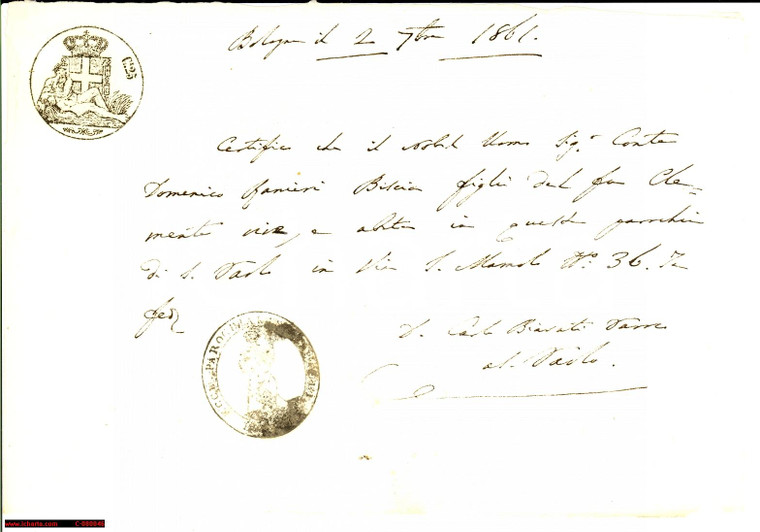 Bologna il 2 7bre 1861.
Certifico che il Nobil Uomo Sig.r Conte
Domenico Ranieri Biscia figlio del fu Cle-
mente vive, e abita in questa parrocchia
di S. Paolo in Via S. Mamolo N.o 36. In
fed
D. Carlo Biavati Parro
di S. Paolo.
ECCL. PAROCH